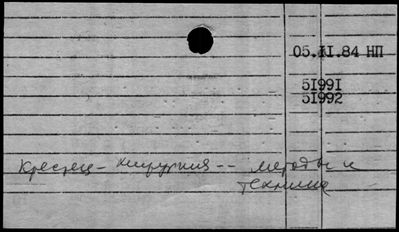 05.II.84 НП
51991
51992
Крестец - хирургия -- методы и
техника